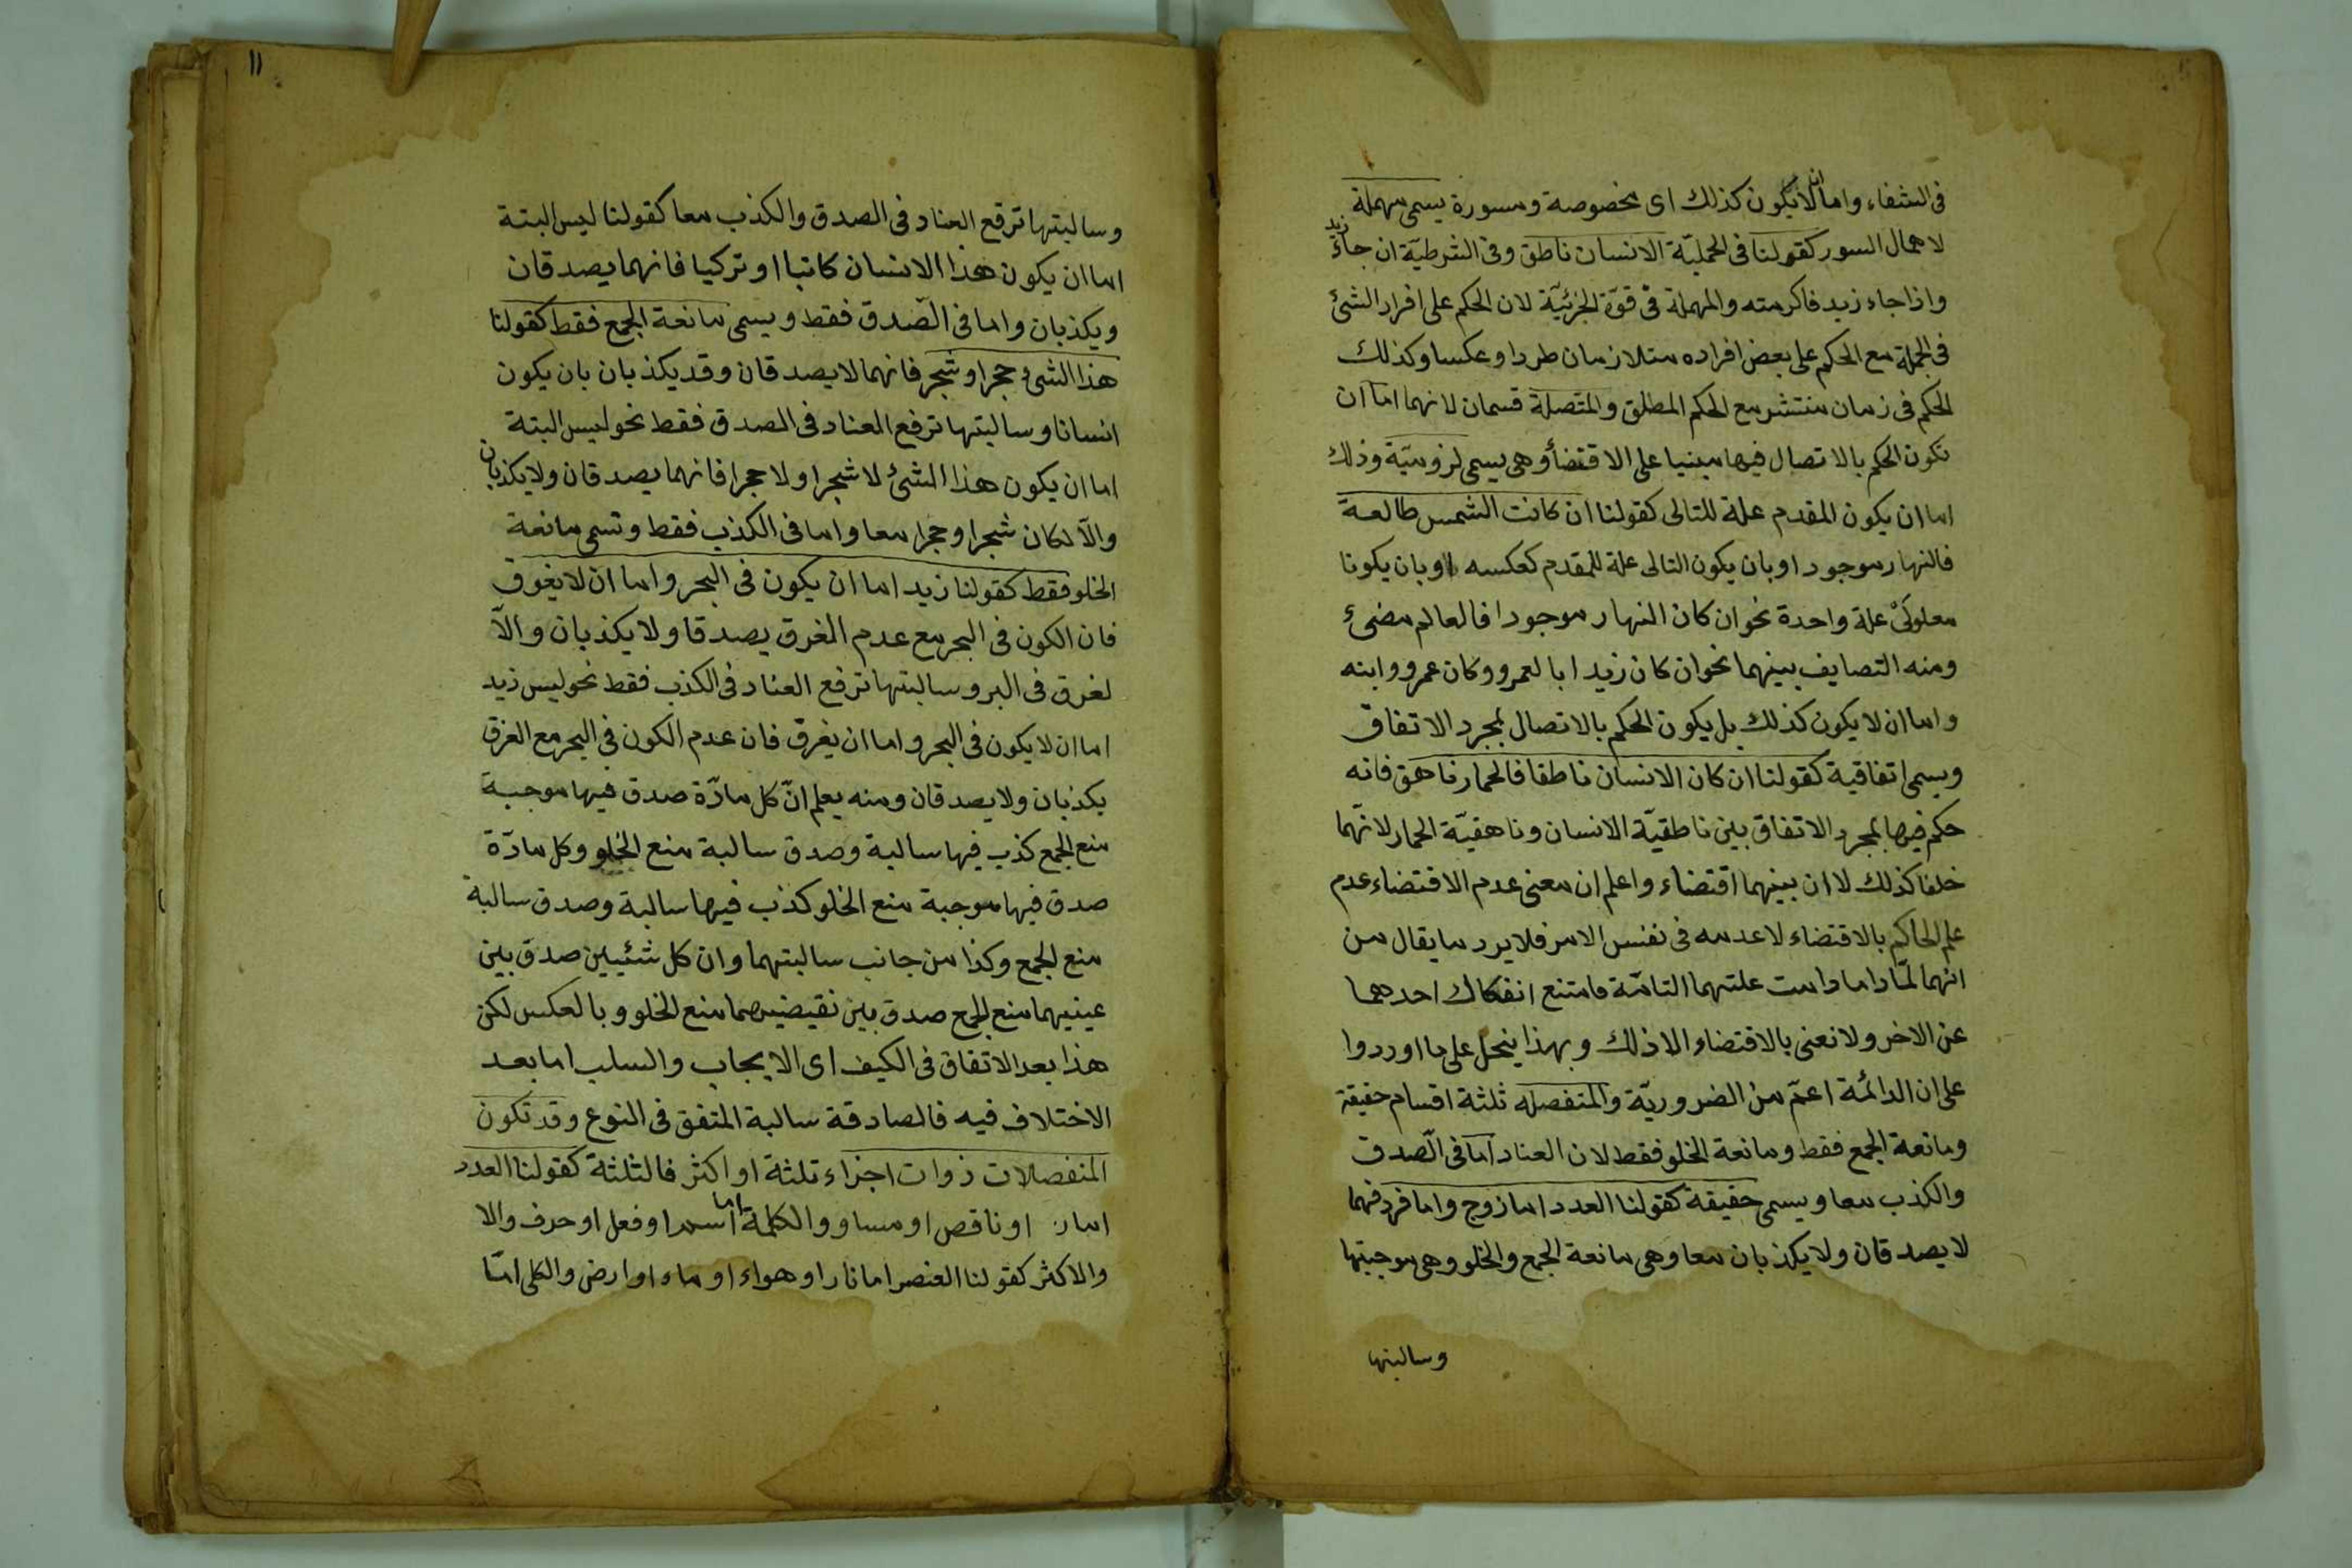 فى الشفاء واما ان لا يكون كذلك اى مخصوصة ومسورة يسمى مهملة
لاهمال السور كقولنا فى الحمليّة الانسان ناطق وفى الشرطيّة ان جاءك زيد
واذا جاء زيد فاكرمته والمهملة فى قوّة الجزئيّة لان الحكم على افراد الشئ
فى الجملة مع الحكم على بعض افراده متلازمان طردا وعكسا وكذلك
الحكم فى زمان منتشر مع الحكم المطلق والمتصلة قسمان لانهما اما ان
تكون الحكم بالاتصال فيها مبنيا على الاقتضأ وهى يسمى لزوميّة وذلك
اما ان يكون المقدم علة للتالى كقولنا ان كانت الشمس طالعة
فالنهار موجود او بان يكون التالى علة للمقدم كعكسه او بان يكونا
معلولَىْ علة واحدة نحو ان كان النهار موجودا فالعالم مضئ
ومنه التضايف بينهما نحو ان كان زيد ابا لعمرو وكان عمرو وابنه
واما ان لا يكون كذلك بل يكون الحكم بالاتصال لمجرد الاتفاق
ويسمى اتفاقية كقولنا ان كان الانسان ناطقا فالحمار ناهق فانه
حكم فيها بمجرد الاتفاق بين ناطقيّة الانسان وناهقيّة الحمار لانهما
خلقا كذلك لا ان بينهما اقتضاء واعلم ان معنى عدم الاقتضاء عدم
علم الحاكم بالاقتضاء لا عدمه فى نفس الامر فلا يرد ما يقال من
انهما لمّا داما دامت علتهما التامّة فامتنع انفكاك احدهما
عن الاخر ولا نعنى بالاقتضاء الا ذلك وبهذا ينحل على ما اوردوا
على ان الدائمة اعمّ من الضروريّة والمنفصلة ثلثة اقسام حقيقة
ومانعة الجمع فقط ومانعة الخلو فقط لان العناد اما فى الصّدق
والكذب معا ويسمى حقيقة كقولنا العدد اما زوج واما فرد فهما
لا يصدقان ولا يكذبان معا وهى مانعة الجمع والخلو وهى موجبتها
وسالبتها
١١
وسالبتها ترفع العناد فى الصدق والكذب معا كقولنا ليس البتة
اما ان يكون هذا الانسان كاتبا او تركيا فانهما يصدقان
ويكذبان واما فى الصّدق فقط ويسمى مانعة الجمع فقط كقولنا
هذا الشئ حجر او شجر فانهما لا يصدقان وقد يكذبان بان يكون
انسانا وسالبتها ترفع العناد فى الصدق فقط نحو ليس البتة
اما ان يكون هذا الشئ لا شجرا ولا حجرا فانهما يصدقان ولا يكذبان
والّا لكان شجرا وحجرا معا واما فى الكذب فقط وتسمى مانعة
الخلو فقط كقولنا زيد اما ان يكون فى البحر واما ان لا يغرق
فان الكون فى البحر مع عدم الغرق يصدقا ولا يكذبان والّا
لغرق فى البر وسالبتها ترفع العناد فى الكذب فقط نحو ليس زيد
اما ان لا يكون فى البحر واما ان يغرق فان عدم الكون فى البحر مع الغرق
يكذبان ولا يصدقان ومنه يعلم انّ كل مادّة صدق فيها موجبة
منع الجمع كذب فيها سالبة وصدق سالبة منع الخلو وكل مادّة
صدق فيها موجبة منع الخلو كذب فيها سالبة وصدق سالبة
منع الجمع وكذا من جانب سالبتهما وان كل شئيين صدق بين
عينيهما منع الجمع صدق بين نقيضيهما منع الخلو وبالعكس لكن
هذا بعد الاتفاق فى الكيف اى الايجاب والسلب اما بعد
الاختلاف فيه فالصادقة سالبة المتفق فى النوع وقد تكون
المنفصلات ذوات اجزاء ثلثة او اكثر فالثلثة كقولنا العدد
اما او ناقص او مساو والكلمة اما اسم او فعل او حرف والا
والاكثر كقولنا العنصر اما نار او هواء او ماء او ارض والكلى امّا